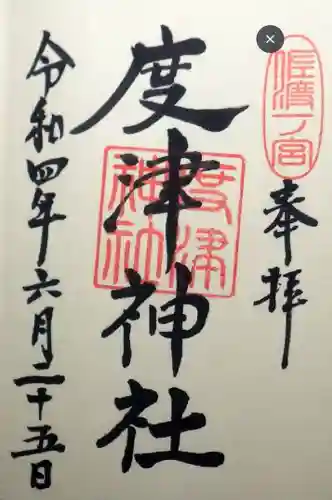 佐渡一ノ宮
奉拝
度津神社
度津神社
令和四年六月二十五日